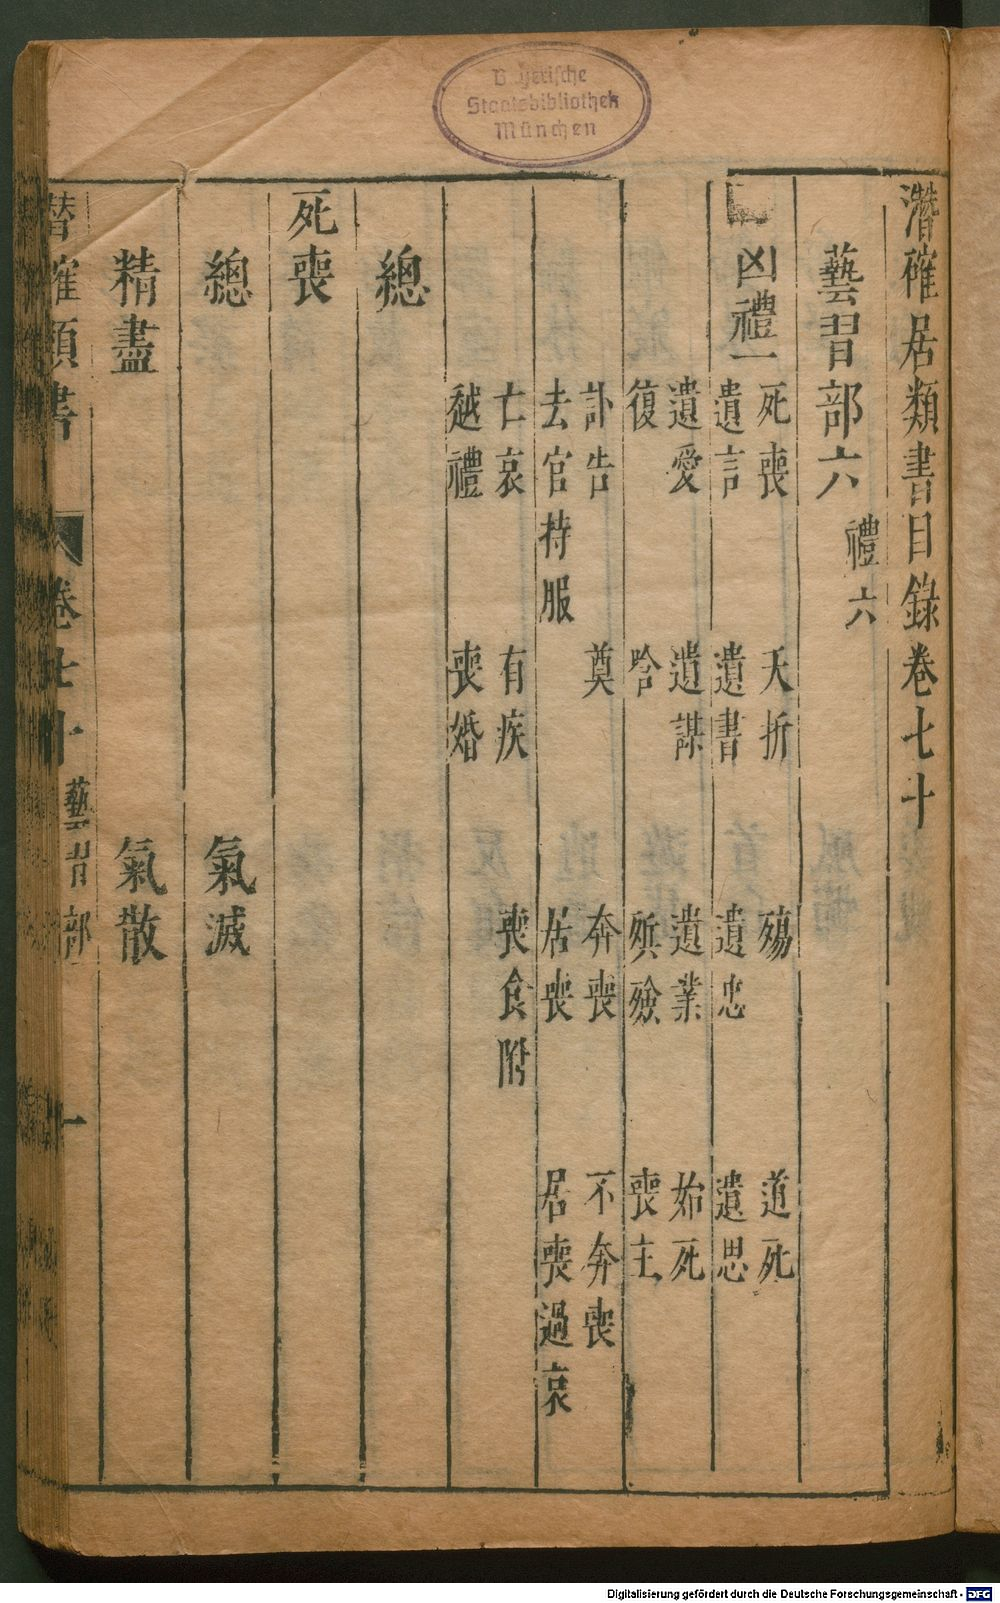 Bayerische
Staatsbibliothek
München
潛確居類書目錄卷七十
藝習部六 禮六
凶禮一
死喪 夭折 殤 道死
遺言 遺書 遺忠 遺思
遺愛 遺謀 遺業 始死
復 唅 殯殮 喪主
訃告 奠 奔喪 不奔喪
去官持服 居喪 居喪過哀
亡哀 有疾 喪食附
越禮 喪婚
總
死喪
總 氣滅
精盡 氣散
潛確類書 卷七十 藝習部 一
Digitalisierung gefördert durch die Deutsche Forschungsgemeinschaft - DFG